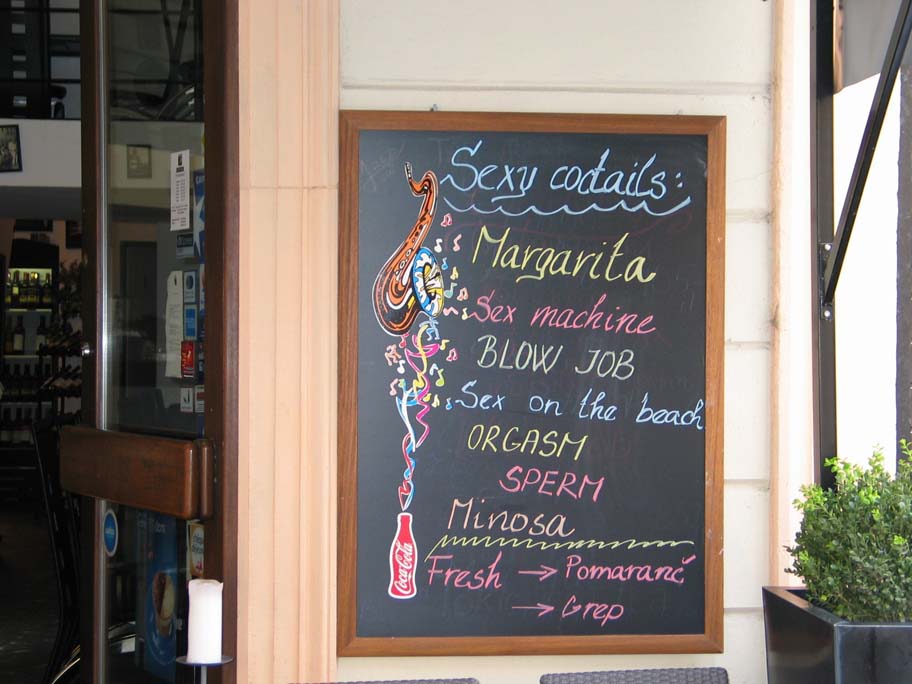 Sexy coctails:
Margarita
Sex machine
BLOW JOB
Sex on the beach
ORGASM
SPERM
Minosa
Fresh → Pomaranč
→ Grep
Coca-Cola